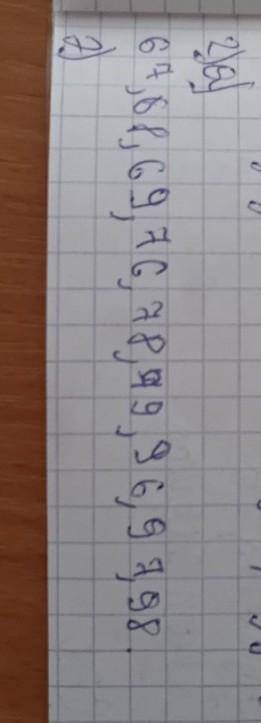 2) б)
67, 68, 69, 76, 78, 79, 96, 97, 98.
2)